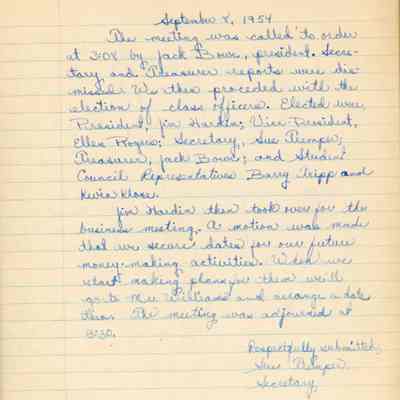 September 8, 1954
The meeting was called to order
at 3:08 by Jack Bowe, president. Secre-
tary and Treasurer reports were dis-
missed. We then proceded with the
election of class officers. Elected were,
President, Jim Hardin; Vice-President,
Ellen Rogers; Secretary, Sue Plemper;
Treasurer, Jack Bowe; and Student
Council Representatives Barry Tripp and
Kevin Klose.
Jim Hardin then took over for the
business meeting. A motion was made
that we secure dates for our future
money-making activities. When we
start making plans for them we'll
go to Mr. Williams and arrange a date
then. The meeting was adjourned at
3:30.
Respectfully submitted,
Sue Plemper
Secretary